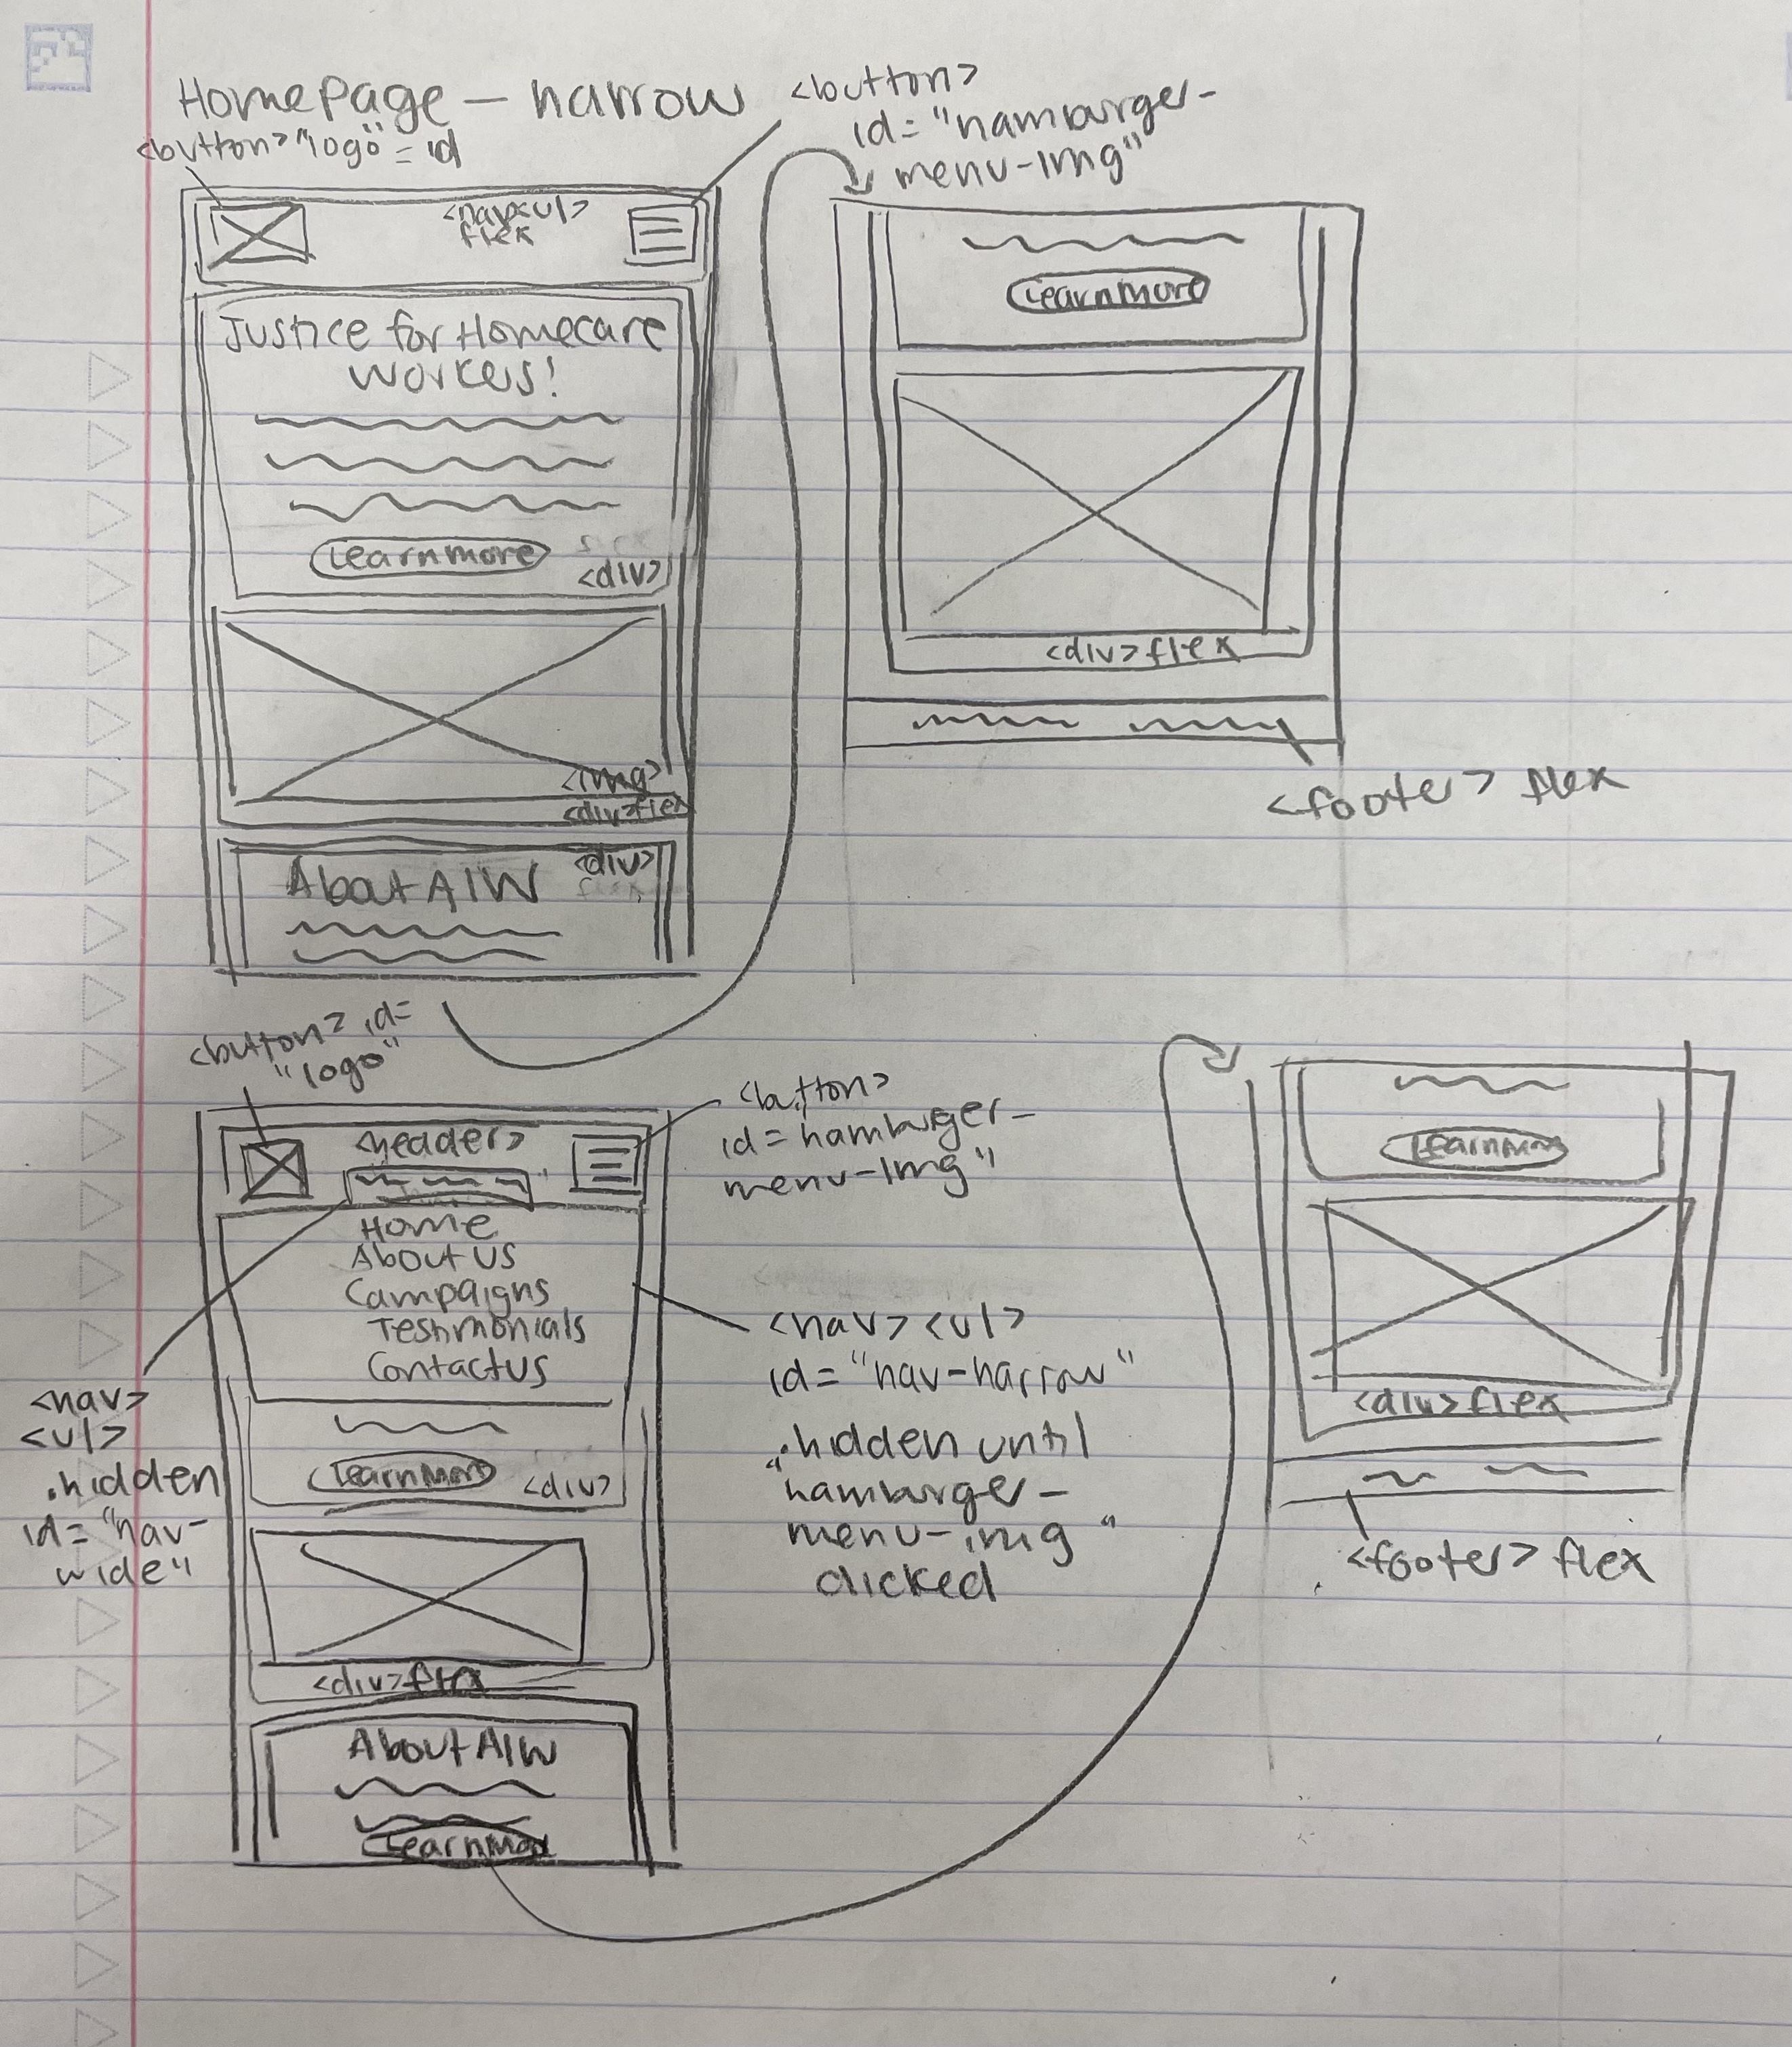 HomePage — narrow
<button> "logo" = id
<button>
id = "hamburger-
menu-img"
<nav><ul>
flex
Justice for Homecare
Workers!
Learn more
<div>
<img>
<div>flex
<div>
About AIW
Learn more
<div>flex
<footer> flex
<button> id=
"logo"
<header>
<button>
id = hamburger-
menu-img"
Home
About us
Campaigns
Testimonials
Contact us
<nav>
<ul>
.hidden
id = "nav-
wide"
<nav> <ul>
id = "nav-narrow"
.hidden until
"hamburger-
menu-img"
clicked
Learn More
<div>
<div>flex
About AIW
Learn More
Learn More
<div>flex
<footer> flex